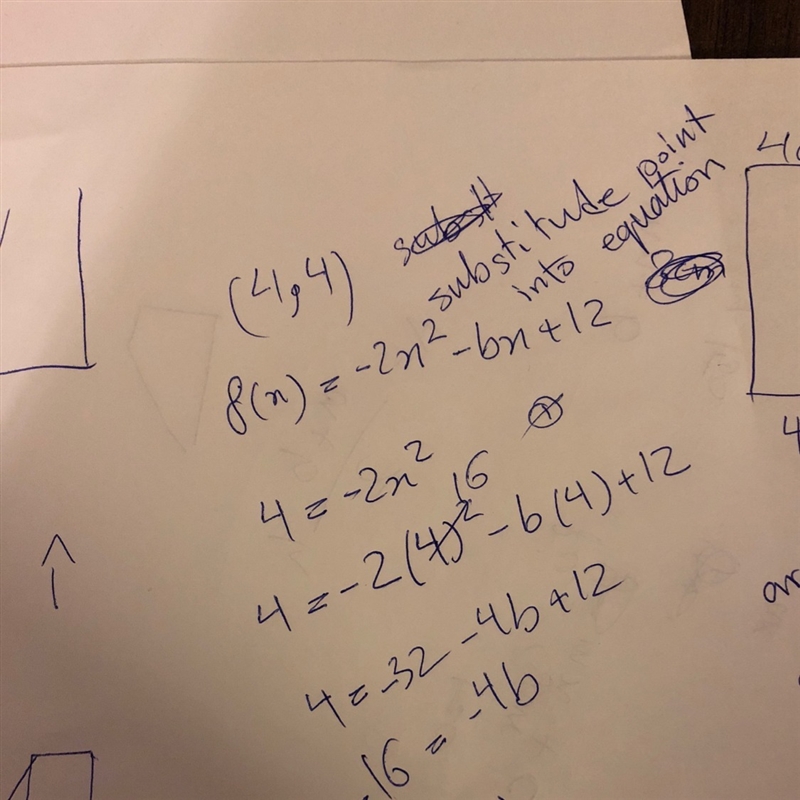 (4,4) substitude point
into equation
f(x) = -2x² - bx + 12
4 = -2x²
16
4 = -2(4)² - b(4) + 12
4 = -32 - 4b + 12
16 = -4b